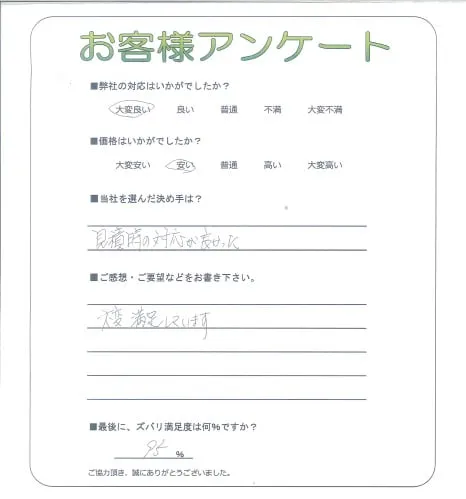 お客様アンケート
■弊社の対応はいかがでしたか？
大変良い 良い 普通 不満 大変不満
■価格はいかがでしたか？
大変安い 安い 普通 高い 大変高い
■当社を選んだ決め手は？
見積時の対応が良かった
■ご感想・ご要望などをお書き下さい。
大変満足しています
■最後に、ズバリ満足度は何%ですか？
95 %
ご協力頂き、誠にありがとうございました。